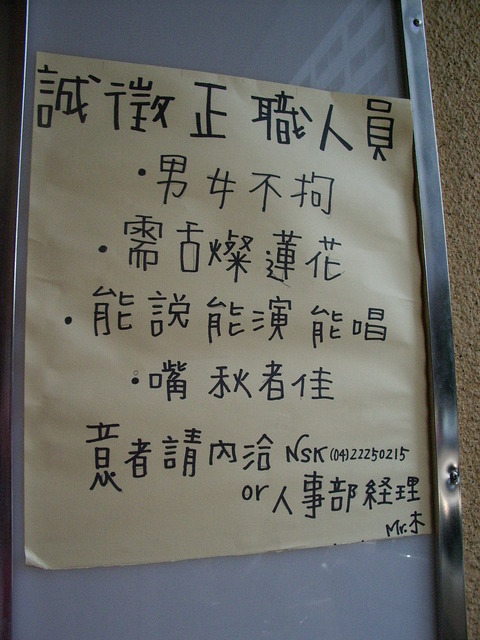 誠徵正職人員
·男女不拘
·需舌燦蓮花
·能說能演能唱
·嘴秋者佳
意者請內洽 NSK (04)22250215
or 人事部経理
Mr.木